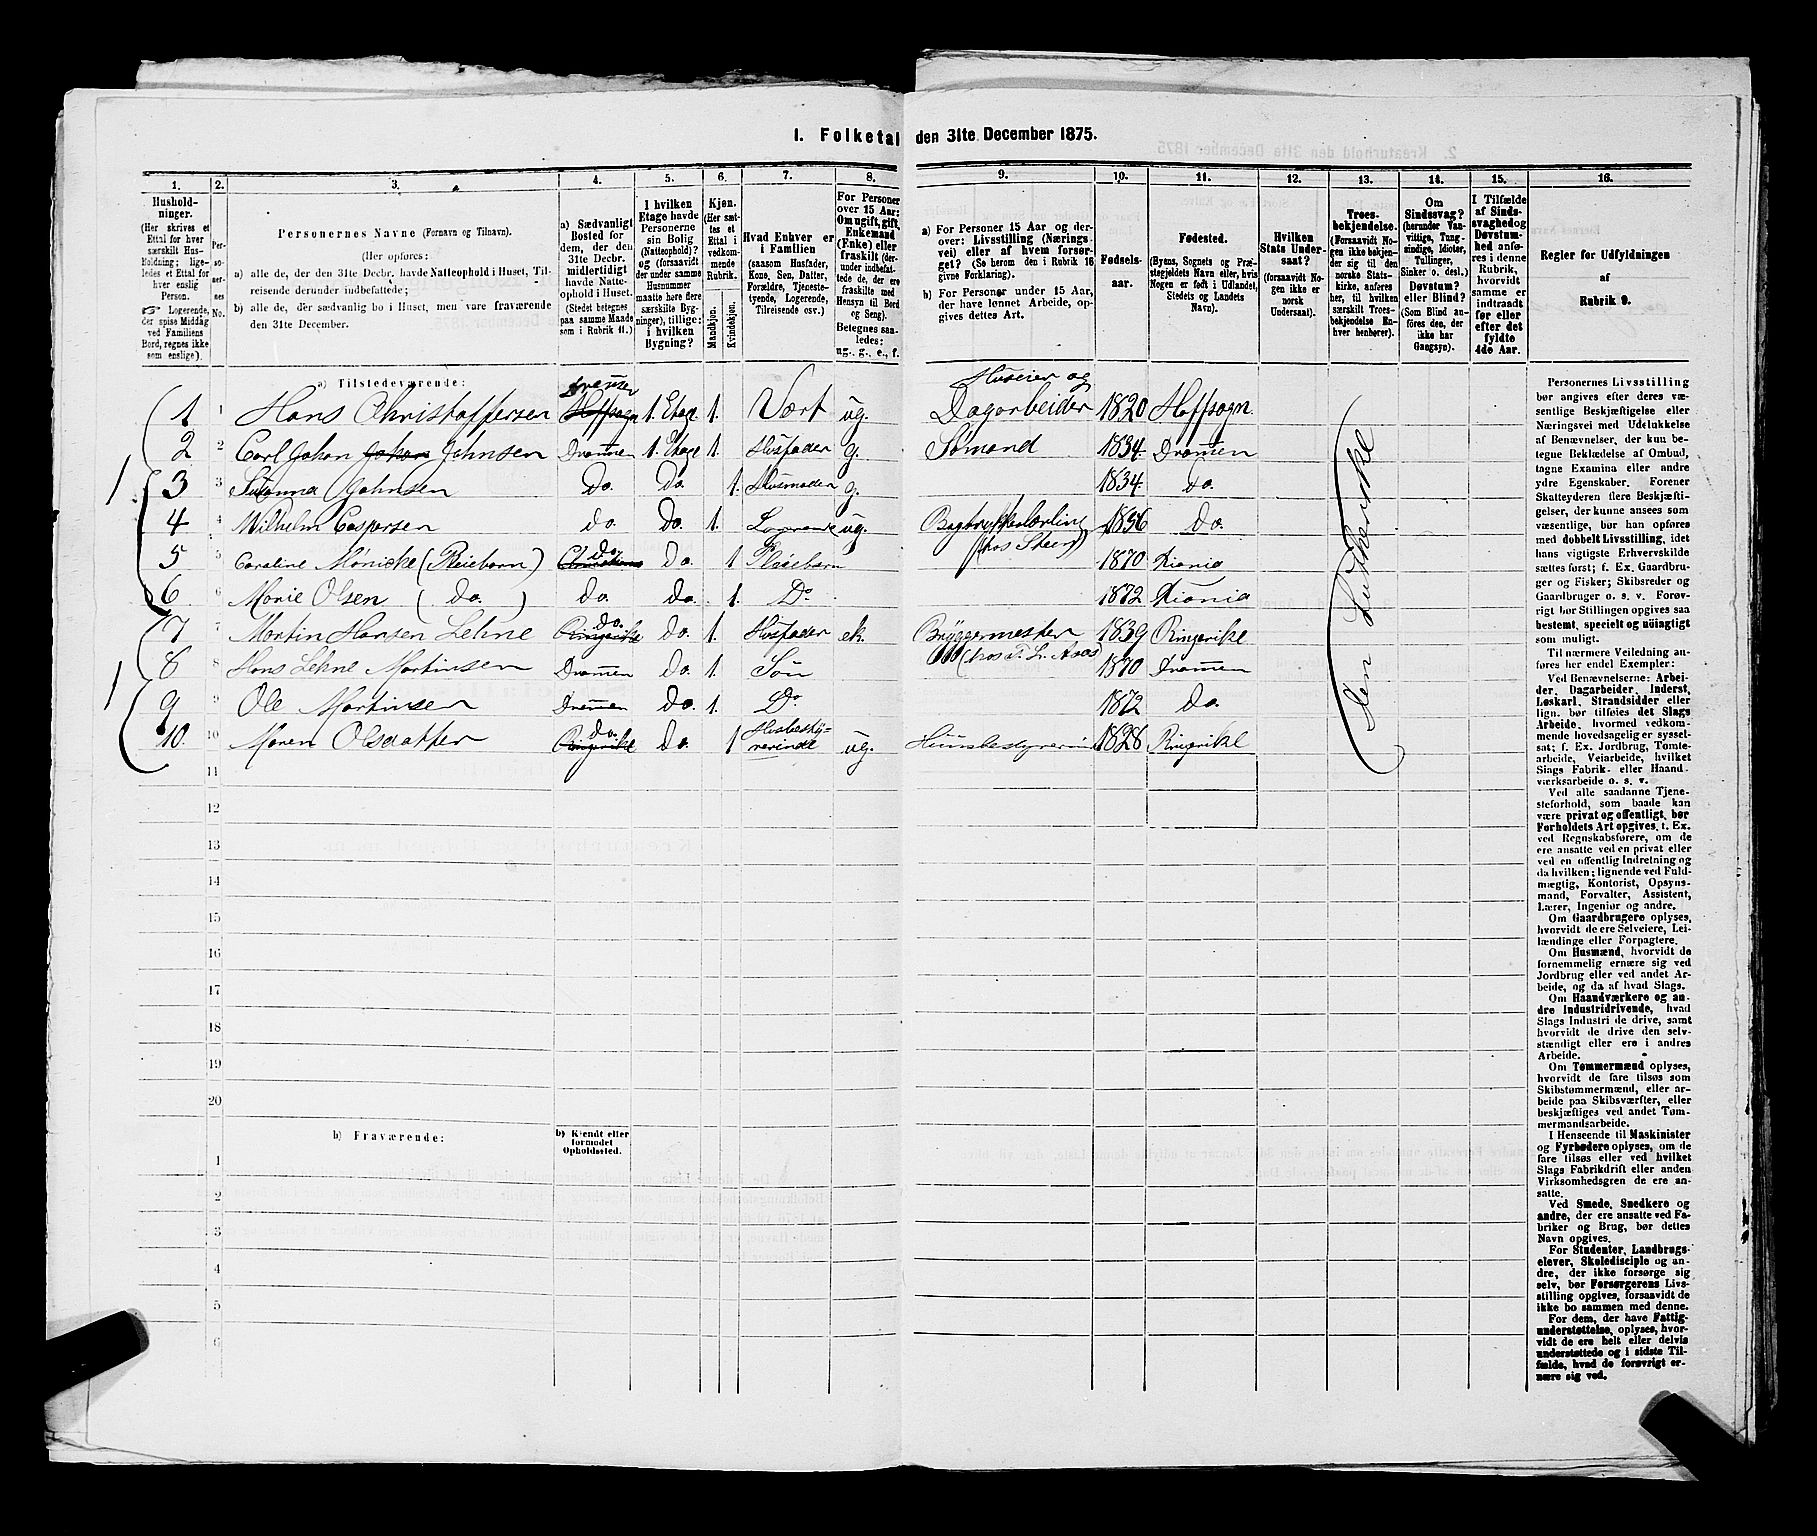 1. Folketal den 31te December 1875.
1. 2. 3. 4. 5. 6. 7. 8. 9. 10. 11. 12. 13. 14. 15. 16.
Hushold-
ninger.
(Her skrives et
Ettal for hver
særskilt Hus-
holdning; lige-
ledes et Ettal for
hver enslig
Person.
Logerende,
der spise Middag
ved Familiens
Bord, regnes ikke
som enslige).
Per-
so-
ner-
nes
No.
Personernes Navne (Fornavn og Tilnavn).
(Her opføres:
a) alle de, der den 31te Decbr. havde Natteophold i Huset, Til-
reisende derunder indbefattede;
b) alle de, der sædvanlig bo i Huset, men vare fraværende
den 31te December.
a) Sædvanligt
Bosted for
dem, der den
31te Decbr.
midlertidigt
havde Natte-
ophold i Huset.
(Stedet betegnes
paa samme Maade
som i Rubrik 11.)
I hvilken
Etage havde
Personerne
sin Bolig
(Natteophold)?
og (forsaavidt
der under samme
Husnummer
maatte høre flere
særskilte Byg-
ninger), tillige:
i hvilken
Bygning?
Kjøn.
(Her sæt-
tes et
Ettal i
vedkom-
mende
Rubrik.
Mandkjøn.
Kvindekjøn.
Hvad Enhver er
i Familien
(saasom Husfader,
Kone, Søn, Datter,
Forældre, Tjeneste-
tyende, Logerende,
Tilreisende osv.)
For Personer
over 15 Aar:
Om ugift, gift,
Enkemand
(Enke) eller
fraskilt (der-
under indbefat-
tede de, der ere
fraskilte med
Hensyn til Bord
og Seng).
Betegnes saa-
ledes:
ug., g., e., f.
a) For Personer 15 Aar og der-
over: Livsstilling (Nærings-
vei) eller af hvem forsør-
get? (Se herom den i Rubrik 16
givne Forklaring).
b) For Personer under 15 Aar,
der have lønnet Arbeide, op-
gives dettes Art.
Fødsels-
aar.
Fødested.
(Byens, Sognets og Præ-
stegjeldets Navn eller, hvis
Nogen er født i Udlandet,
Stedets og Landets
Navn).
Hvilken
Stats Under-
saat?
(forsaavidt No-
gen ikke er
norsk
Undersaat).
Troes-
bekjendelse.
(Forsaavidt No-
gen ikke bekjen-
der sig til den
norske Stats-
kirke, anføres
her, til hvilken
særskilt Troes-
bekjendelse En-
hver henhører).
Om
Sindssvag?
(herunder Van-
vittige, Tung-
sindige, Idioter,
Tullinger,
Sinker o. desl.)
Døvstum?
eller Blind?
(Som Blind an-
føres den, der
ikke har
Gangsyn).
I Tilfælde
af Sinds-
svaghed og
Døvstum-
hed anfø-
res i denne
Rubrik,
hvorvidt
samme er
indtraadt
før eller
efter det
fyldte
4de Aar.
Regler for Udfyldningen
af
Rubrik 9.
a) Tilstedeværende:
1 1 Hans Christoffersen Drammen Hoffsogn 1. Etage 1. Vært ug. Huseier og Dagarbeider 1820 Hoffsogn
2 2 Carl Johan Johan Johnsen Drammen 1. Etage 1. Husfader g. Sømand 1834. Drammen
1 3 3 Susanna Johnsen do. Do. 1. Husmoder g. 1834. Do.
4 4 Wilhelm Caspersen do. Do. 1. Logerende ug. Bogtrykkerlærling (hos Steen) 1856 Do.
5 5 Caroline Møniske (Pleiebarn) Do. Christiania Do. 1 Pleiebarn 1870 Xiania
6 6 Marie Olsen (Do.) do. Do. 1. Do 1872 Xiania
7 7 Martin Hansen Lehne do. Ringerike Do. 1. Husfader ek. Bryggermester (hos P. Lr. Aass) 1839 Ringerike
1 8 8 Hans Lehne Martinsen Drammen Do. 1. Søn 1870 Drammen
9 9 Ole Martinsen Drammen Do. 1. Do 1872 Do.
10. 10 Maren Olsdatter do. Ringerike Do. 1 Husbesty-
rerinde ug. Huusbestyrerinde 1828 Ringerike
Den Lutherske
11
12
13
14
15
16
17
18
19
20
b) Fraværende:
b) Kjendt eller
formodet
Opholdssted.
1
2
3
4
5
6
Personernes Livsstilling
bør angives efter deres væ-
sentlige Beskjæftigelse eller
Næringsvei med Udelukkelse
af Benævnelser, der kun be-
tegne Beklædelse af Ombud,
tagne Examina eller andre
ydre Egenskaber. Forener
Skatteyderen flere Beskjæfti-
gelser, der kunne ansees som
væsentlige, bør han opføres
med dobbelt Livsstilling, idet
hans vigtigste Erhvervskilde
sættes først; f. Ex. Gaardbru-
ger og Fisker; Skibsreder og
Gaardbruger o. s. v. Forøv-
rigt bør Stillingen opgives saa
bestemt, specielt og nøiagtigt
som muligt.
Til nærmere Veiledning an-
føres her endel Exempler:
Ved Benævnelserne: Arbei-
der, Dagarbeider, Inderst,
Løskarl, Strandsidder eller
lign. bør tilføies det Slags
Arbeide, hvormed vedkom-
mende hovedsagelig er syssel-
sat; f. Ex. Jordbrug, Tømte-
arbeide, Veiarbeide, hvilket
Slags Fabrik- eller Haand-
værksarbeide o. s. v.
Ved alle saadanne Tjene-
steforhold, som baade kan
være privat og offentligt, bør
Forholdets Art opgives, t. Ex.
ved Regnskabsførere, om de
ere ansatte ved en privat eller
ved en offentlig Indretning og
da hvilken; lignende ved Fuld-
mægtig, Kontorist, Opsyns-
mand, Forvalter, Assistent,
Lærer, Ingeniør og andre.
Om Gaardbrugere oplyses,
hvorvidt de ere Selveiere, Lei-
lændinge eller Forpagtere.
Om Husmænd, hvorvidt de
fornemmelig ernære sig ved
Jordbrug eller ved andet Ar-
beide, og da af hvad Slags.
Om Haandværkere og an-
dre Industridrivende, hvad
Slags Industri de drive, samt
hvorvidt de drive den selv-
stændigt eller ere i andres
Arbeide.
Om Tømmermænd oplyses,
hvorvidt de fare tilsøs som
Skibstømmermænd, eller ar-
beide paa Skibsværfter, eller
beskjæftiges ved andet Tøm-
mermandsarbeide.
I Henseende til Maskinister
og Fyrbødere oplyses, om de
fare tilsøs eller ved hvilket
Slags Fabrikdrift eller anden
Virksomhedsgren de ere an-
satte.
Ved Smede, Snedkere og
andre, der ere ansatte ved Fa-
briker og Brug, bør dettes
Navn opgives.
For Studenter, Landbrugs-
elever, Skoledisciple og an-
dre, der ikke forsørge sig
selv, bør Forsørgerens Livs-
stilling opgives, forsaavidt de
ikke bo sammen med denne.
For dem, der have Fattig-
understøttelse, oplyses, hvor-
vidt de ere helt eller delvis
understøttede og i sidste Til-
fælde, hvad de forøvrigt er-
nære sig ved.